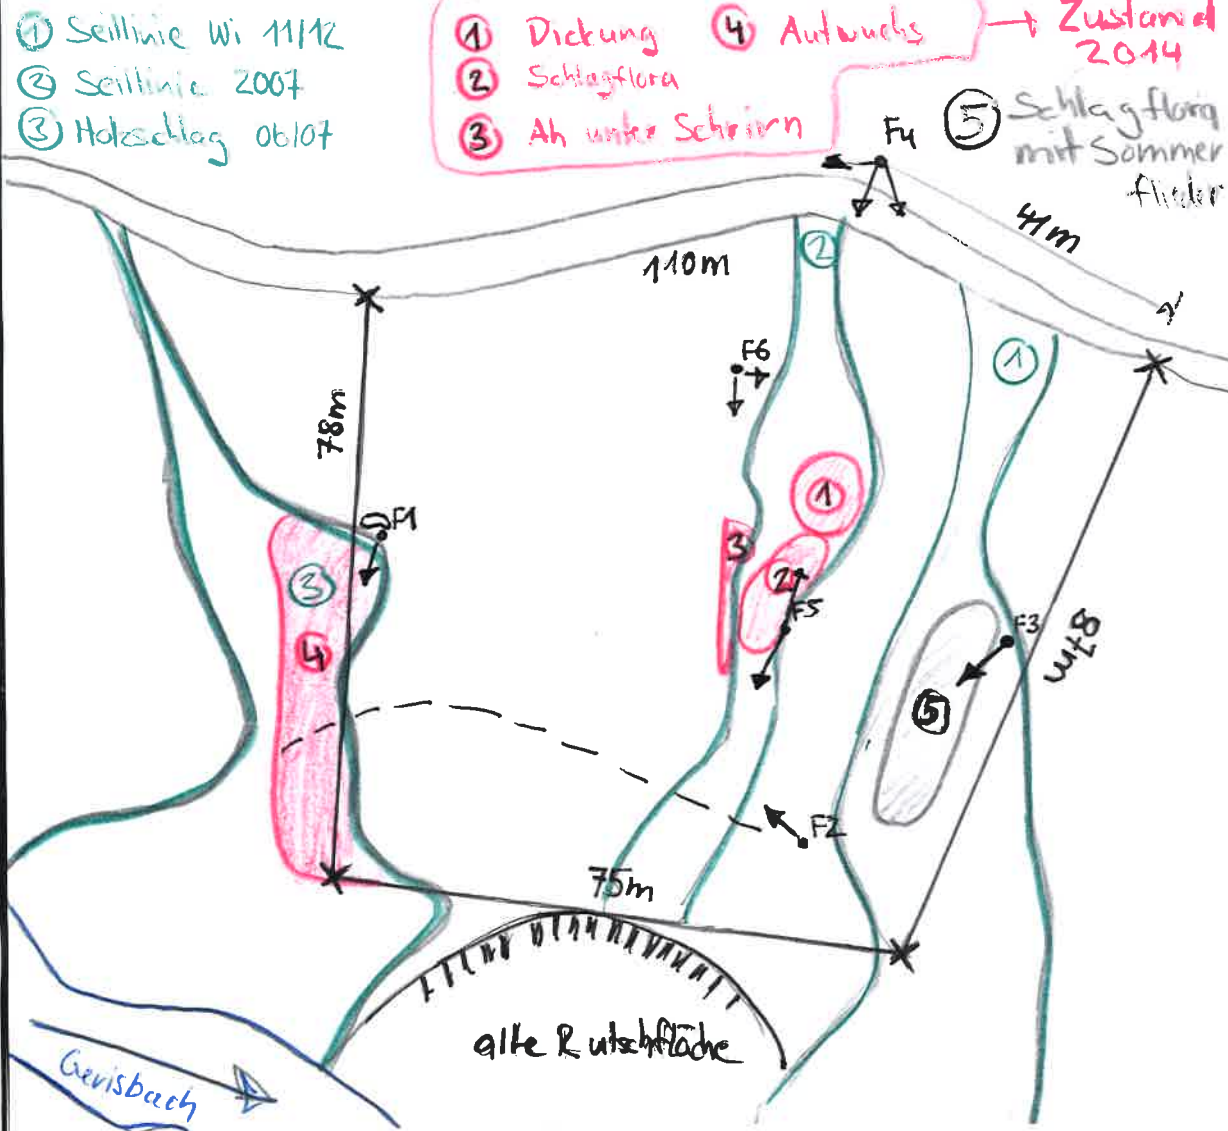 ① Seillinie Wi 11/12
② Seillinie 2007
③ Holzschlag 06/07
① Dickung ④ Aufwuchs
② Schlagflora
③ Ah unter Schirm
→ Zustand
2014
⑤ Schlagflora
mit Sommer
flieder
F4
41m
110m
②
①
F6
78m
①
F1
3
③
2
F5
F3
4
87m
⑤
F2
75m
alte Rutschfläche
Gerisbach